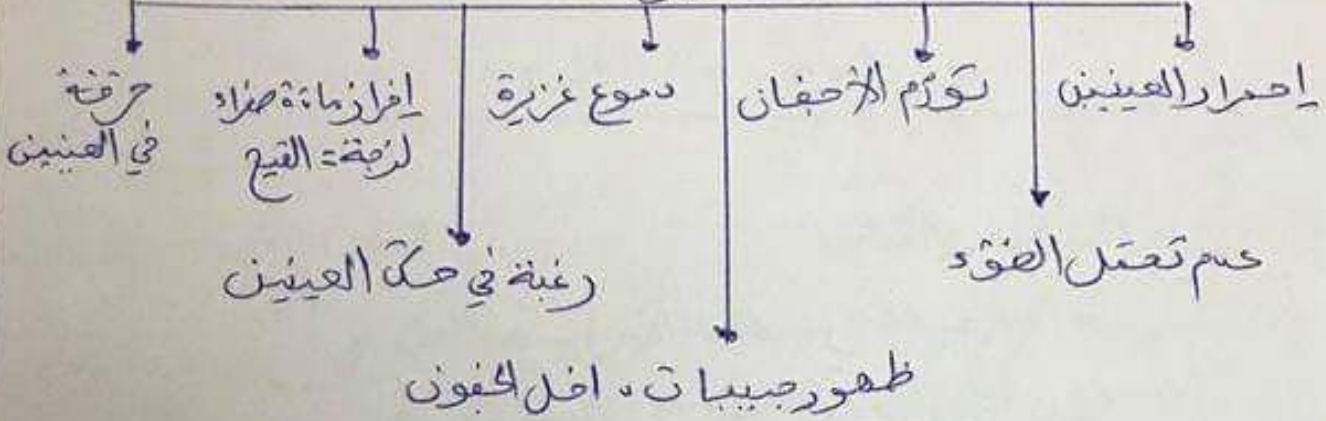 إحمرار العينين
تورّم الأجفان
دموع غزيرة
إفراز مادة صفراء
لزجة = القيح
حرقة
في العينين
عدم تحمّل الضّوء
رغبة في حكّ العينين
ظهور حبيبات داخل الجفون